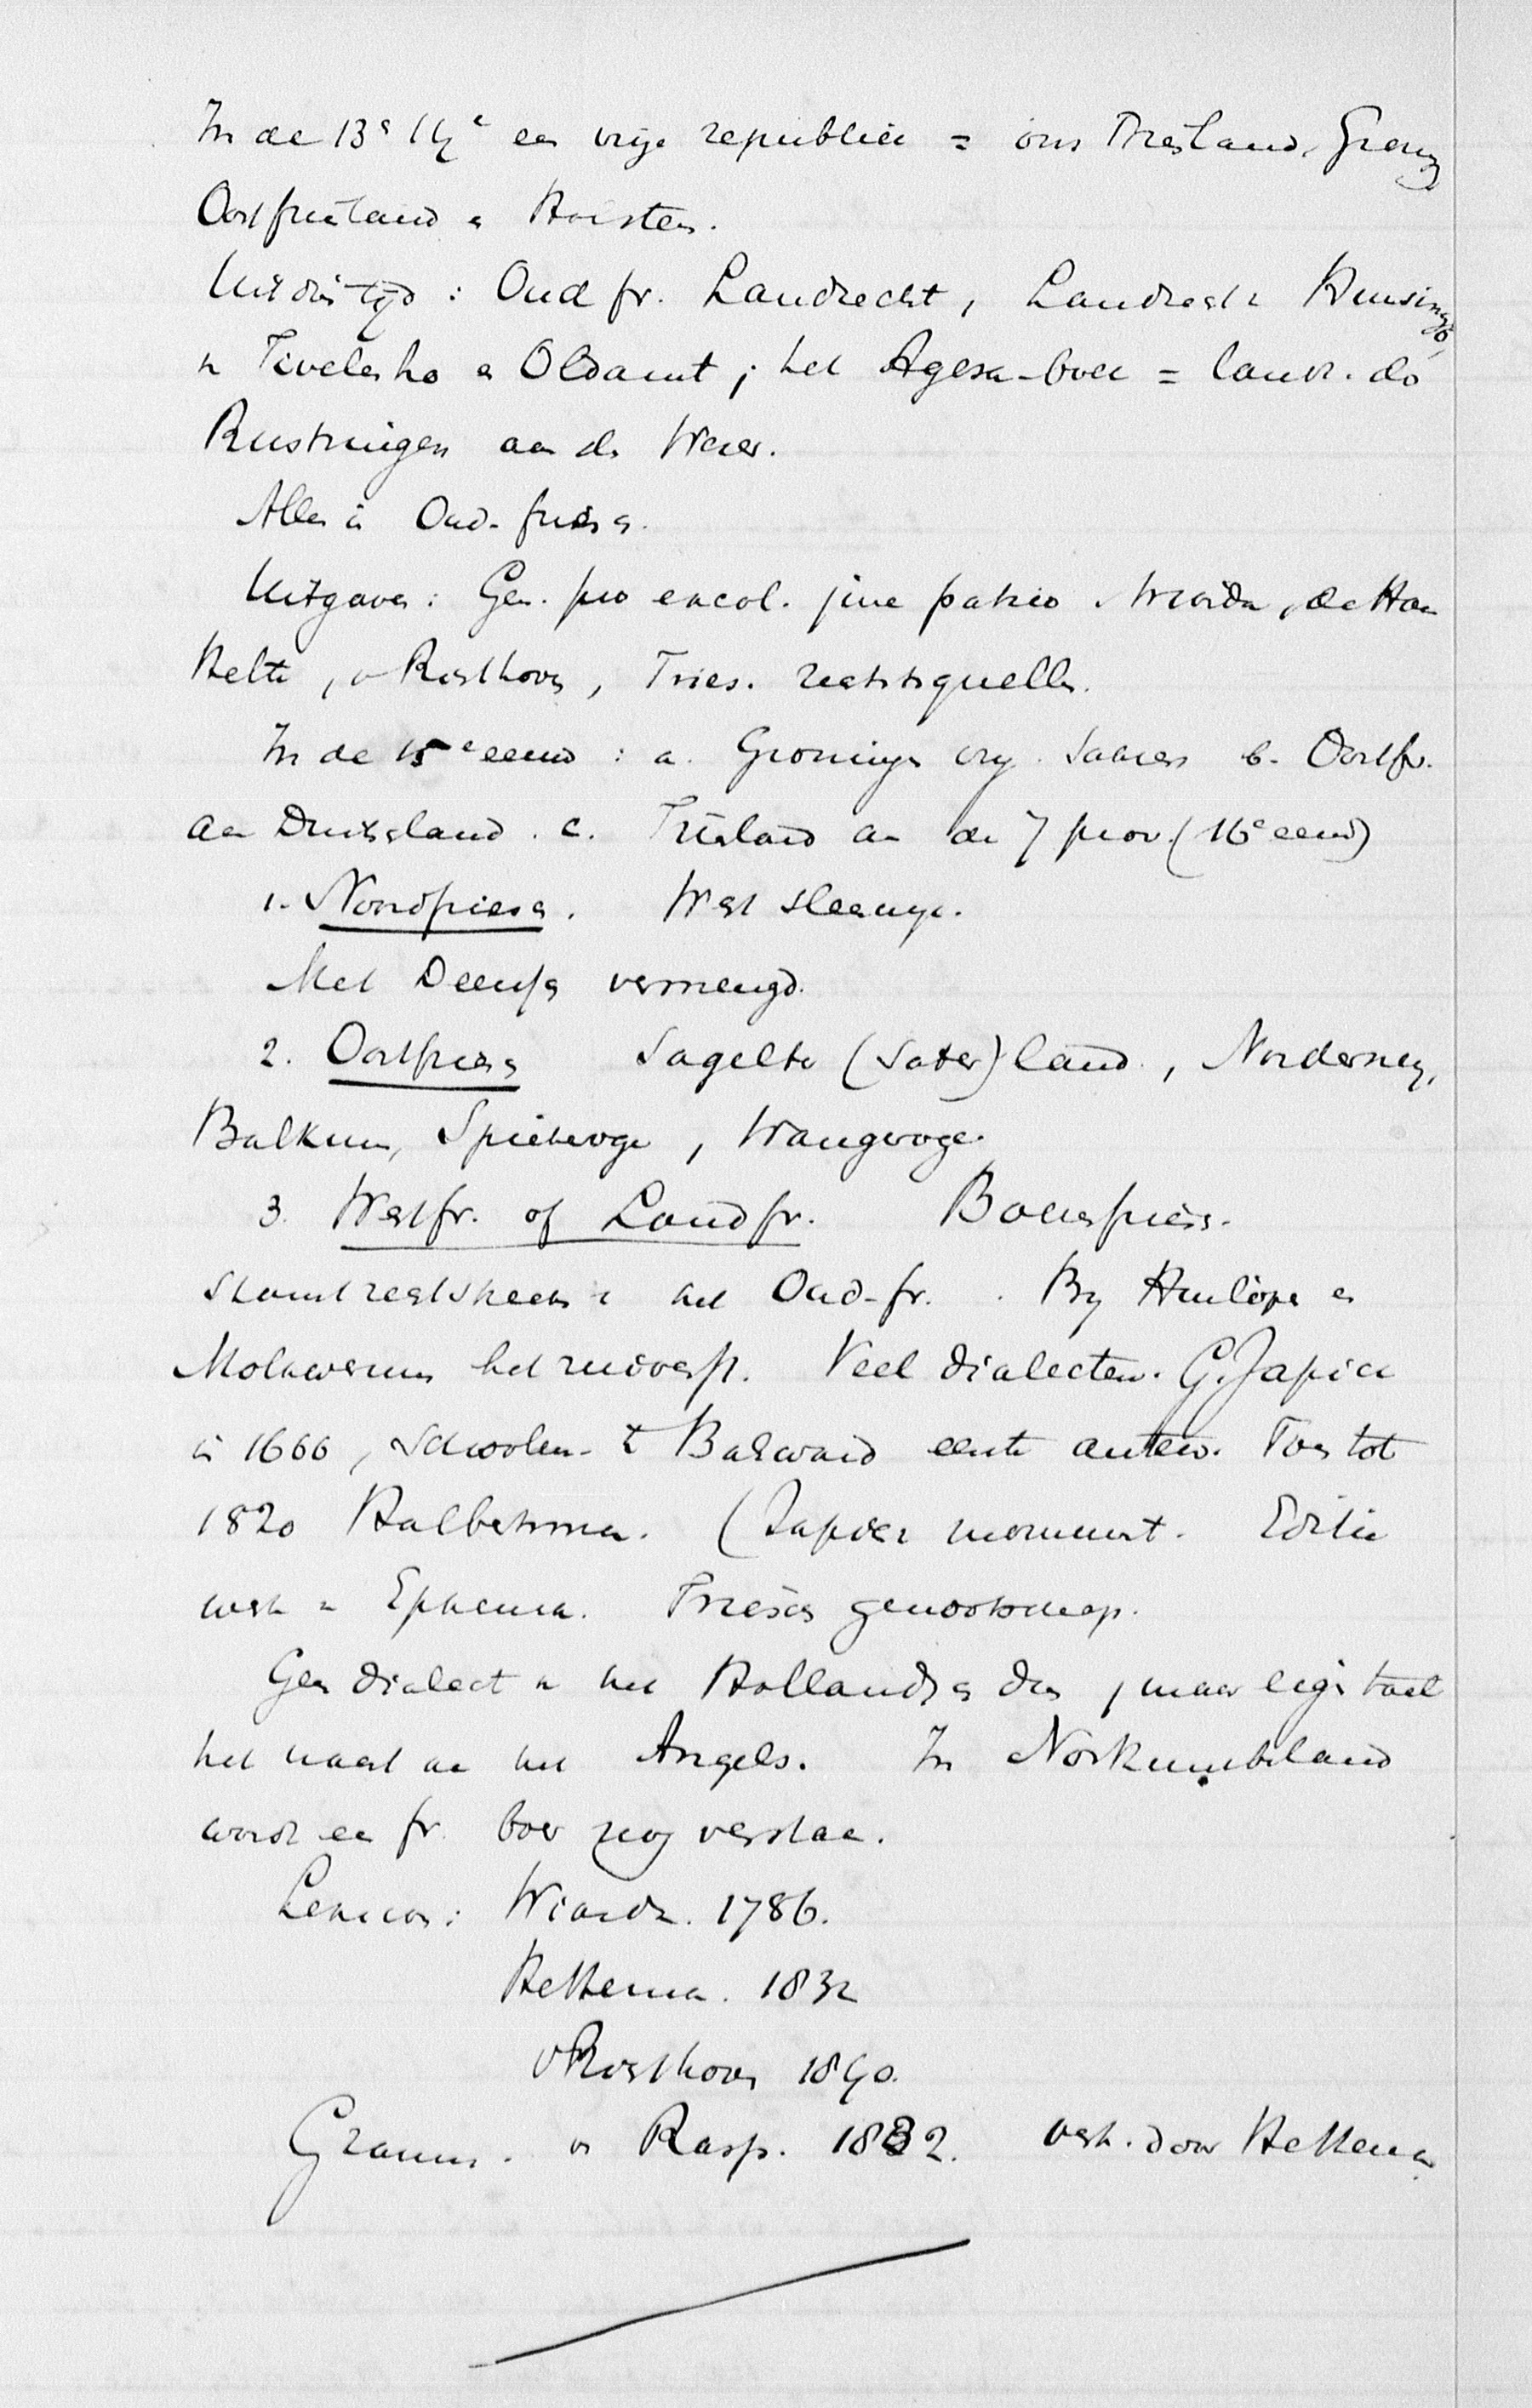 In de 13e 14e een vrije republiek = ons Friesland, Gron,
Oostfriesland en Holsten.
Uit die tijd: Oud fr. Landrecht, Landrecht v Hunsingo,
v Fivelgho en Oldamt; het Agesa-boek = landr. de
Rustringen aan de Weser.
Alles in Oud-friesch.
Uitgaven: Gen. pro excol. jure patrio. Wierda, de Haan
Hett, v Richthoven, Fries. rechtsquellen.
In de 15e eeuw: a. Groningen vrij. Saksen b. Oostfr.
aan Duitsland. c. Friesland aan de 7 prov. (16e eeuw)
1. Noordfriesch. West Sleeswyk.
Met Deensch vermengd.
2. Oostfriesch Sagelter (Sater)land, Norderney,
Balkum, Spiekeroge, Wangeroge.
3. Westfr. of Landfr. Boerenfriesch.
stamt rechtstreeks v het Oud-fr. By Hinlopen en
Molkwerum het zuiverst. Veel dialecten. G. Japicx
in 1666, Schoolm. te Bolsward eerste auteur. Toen tot
1820 Halbertsma. (Japicx monument. Editie
werk v Epkema. Friesch genootschap.
Geen dialect v het Hollandsch dus, maar eigen taal
het naast aan het Angels. In Northumberland
wordt een fr. boer nog verstaan.
Lexicon: Wiarda. 1786.
Hettema. 1832
v Richthoven 1840.
Gramm. v Rask. 1832. vert. door Hettema